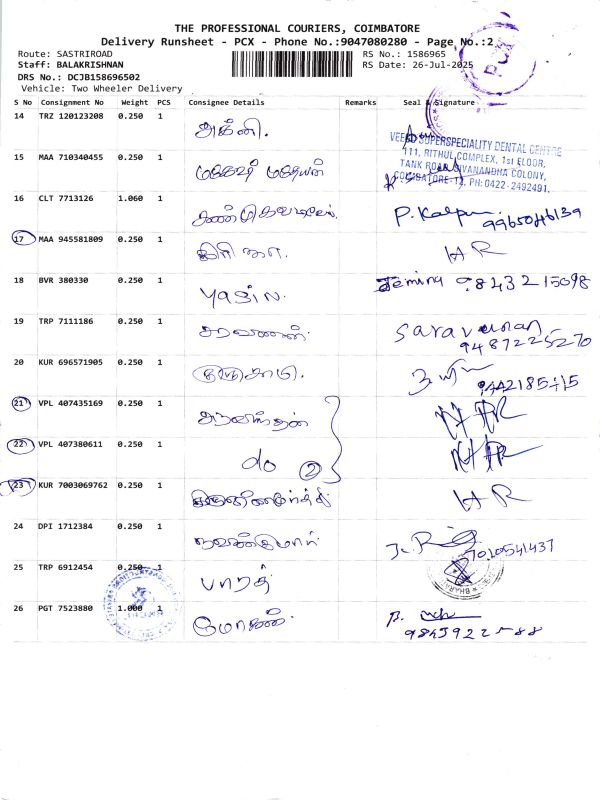 THE PROFESSIONAL COURIERS, COIMBATORE
Delivery Runsheet - PCX - Phone No.:9047080280 - Page No.:2
Route: SASTRIROAD RS No.: 1586965
Staff: BALAKRISHNAN RS Date: 26-Jul-2025
DRS No.: DCJB158696502
Vehicle: Two Wheeler Delivery
S No Consignment No Weight PCS Consignee Details Remarks Seal & Signature
14 TRZ 120123208 0.250 1 அக்னி.
VEEKO SUPERSPECIALITY DENTAL CENTRE
111, RITHUL COMPLEX, 1st FLOOR,
TANK ROAD, SIVANANDHA COLONY,
COIMBATORE-12, PH: 0422-2492491.
15 MAA 710340455 0.250 1
16 CLT 7713126 1.060 1 P. Kalpu 9965046139
17 MAA 945581809 0.250 1 HR
18 BVR 380330 0.250 1 Yasin. Jemina 9843215098
19 TRP 7111186 0.250 1 சரவணன். Saravanan
9487225270
20 KUR 696571905 0.250 1
21 VPL 407435169 0.250 1 அரவிந்தன்
22 VPL 407380611 0.250 1 do 2
23 KUR 7003069762 0.250 1 HR
24 DPI 1712384 0.250 1 7010541437
25 TRP 6912454 0.250 1 பாரத்
26 PGT 7523880 1.000 1 மோகன். B.